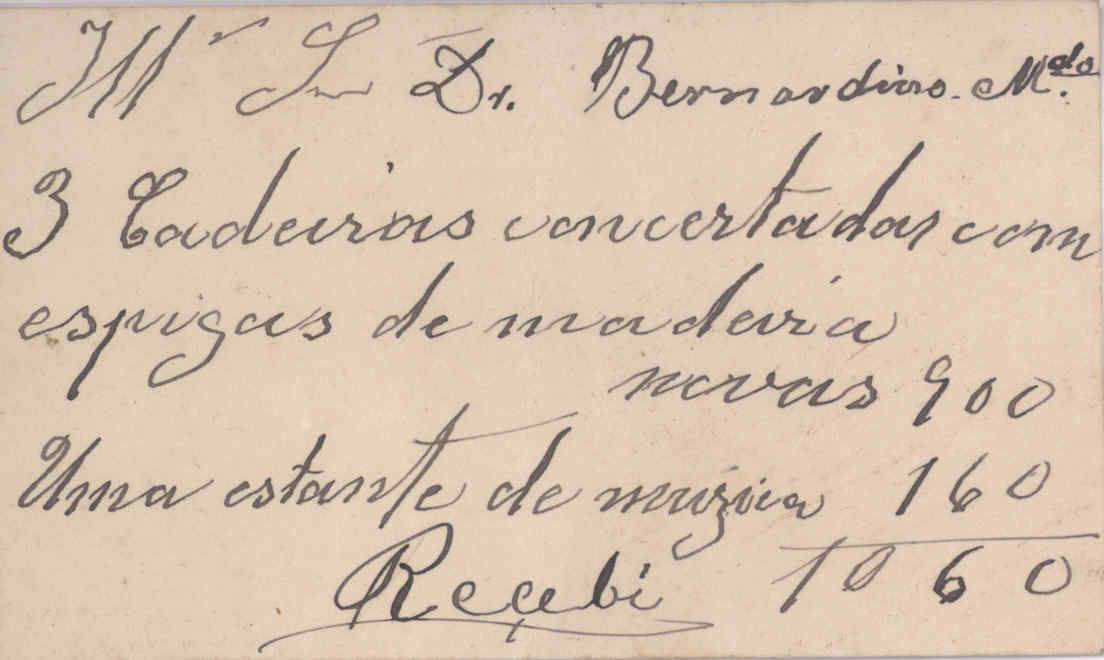 Illº Sr Dr. Bernardino. M.do
3 Cadeiras concertadas com
espigas de madeira
novas 900
Uma estante de muzica 160
Reçebi 1060